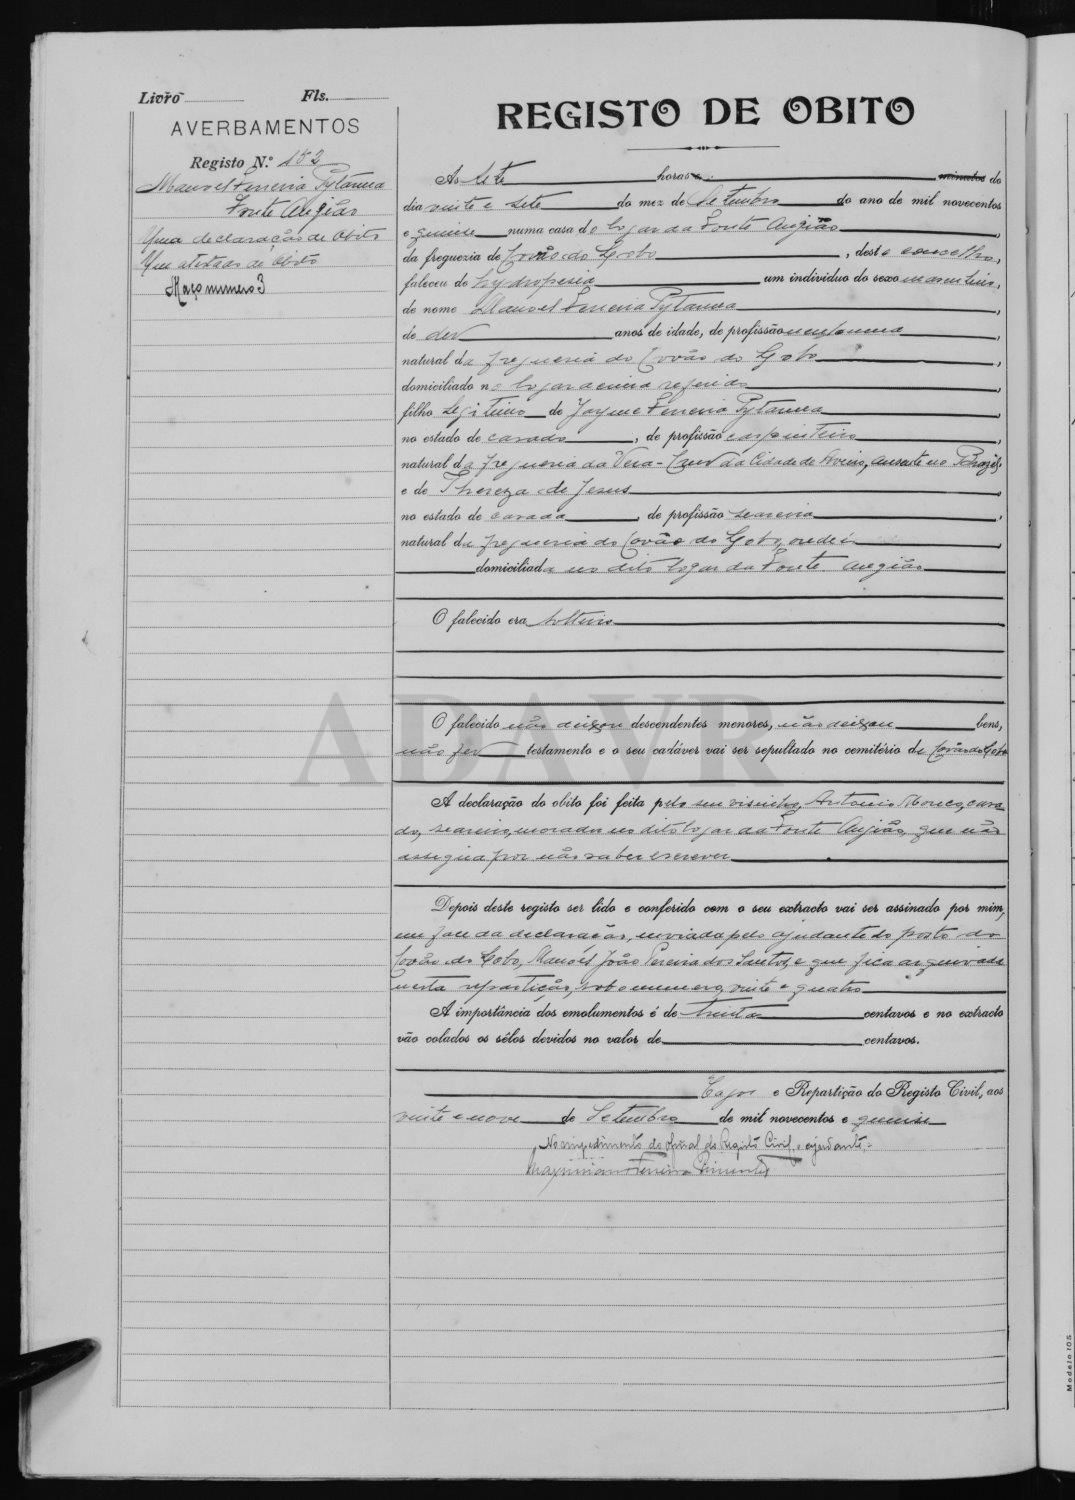 Livro Fls.
AVERBAMENTOS
Registo N.º 152
Manoel Ferreira Pytarma
Fonte Angião
Uma declaração de Obito
Um atestado de Obito
Maço numero 3
REGISTO DE OBITO
Ás sete horas e minutos do
dia vinte e sete do mez de Setembro do ano de mil novecentos
e quinze numa casa do logar da Fonte Angião,
da freguezia de Covão do Lobo, deste concelho,
faleceu de hydropesia um individuo do sexo masculino,
de nome Manoel Ferreira Pytarma,
de dez anos de idade, de profissão nenhuma,
natural da freguesia do Covão do Lobo,
domiciliado no logar acima referido
filho legitimo de Jayme Ferreira Pytarma
no estado de casado, de profissão carpinteiro,
natural da freguesia da Vera-Cruz da Cidade de Aveiro, ausente no Brazil,
e de Thereza de Jesus,
no estado de casada, de profissão seareira,
natural da freguesia do Covão do Lobo, onde é
domiciliada no dito logar da Fonte Angião
O falecido era solteiro
O falecido não deixou descendentes menores, não deixou bens,
não fez testamento e o seu cadáver vai ser sepultado no cemitério de Covão do Lobo
A declaração do obito foi feita pelo seu visinho, Antonio Monco, casa-
do, seareiro, morador no dito logar da Fonte Angião, que não
assigna por não saber escrever
Depois deste registo ser lido e conferido com o seu extracto vai ser assinado por mim,
em face da declaração, enviada pelo ajudante do posto do
Covão do Lobo, Manoel João Pereira dos Santos, e que fica arquivada
nesta repartição, sob o numero, vinte e quatro
A importância dos emolumentos é de trinta centavos e no extracto
vão colados os sêlos devidos no valor de centavos.
e Repartição do Registo Civil, aos
vinte e nove de Setembro de mil novecentos e quinze
No impedimento do oficial do Registo Civil, o ajudante,
Ferreira Pimentel
ADAVR
Modelo 105